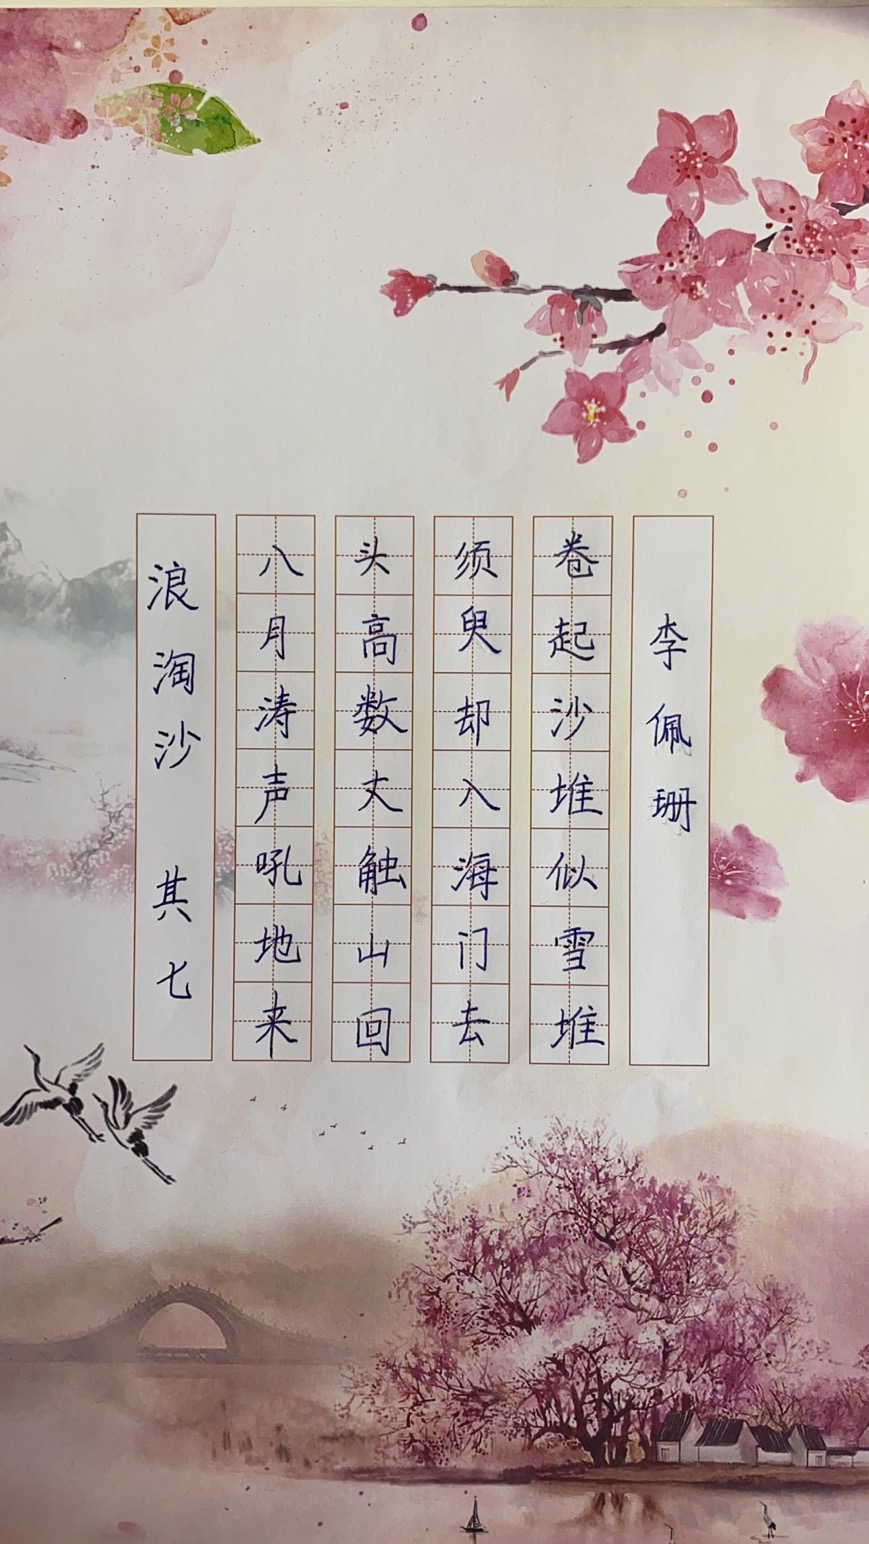 浪淘沙 其七
八月涛声吼地来
头高数丈触山回
须臾却入海门去
卷起沙堆似雪堆
李佩珊